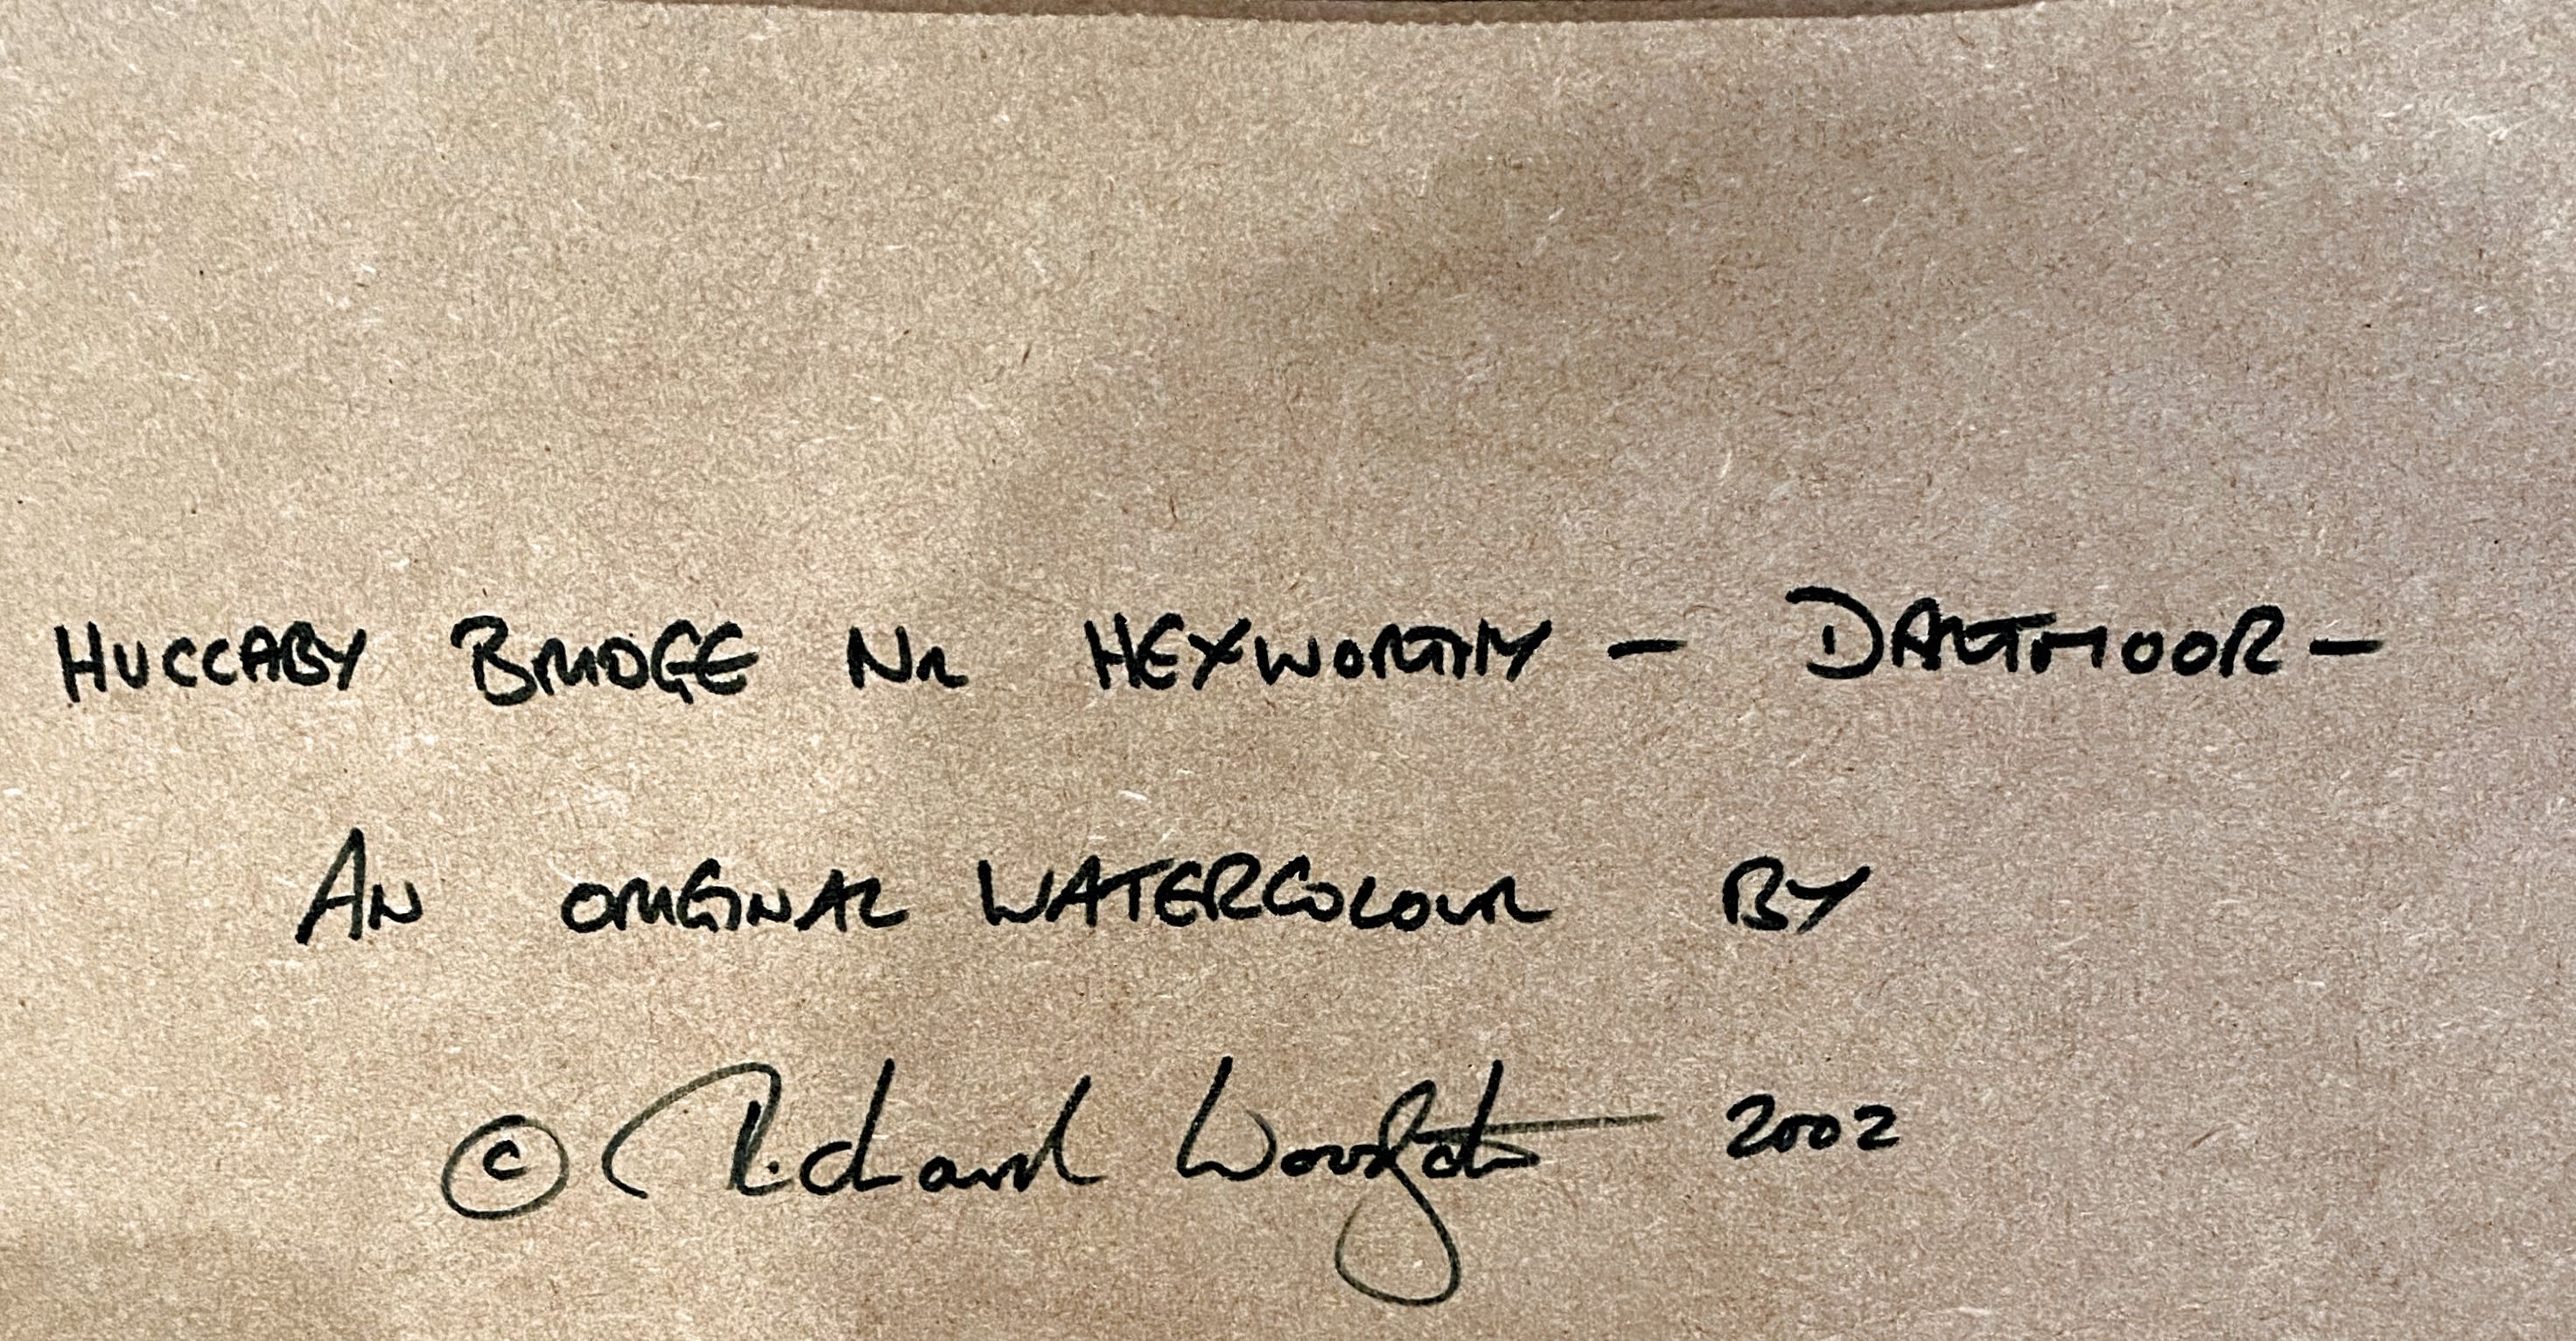 HUCCABY BRIDGE NR HEXWORTHY - DARTMOOR -
AN ORIGINAL WATERCOLOUR BY
© Richard 2002